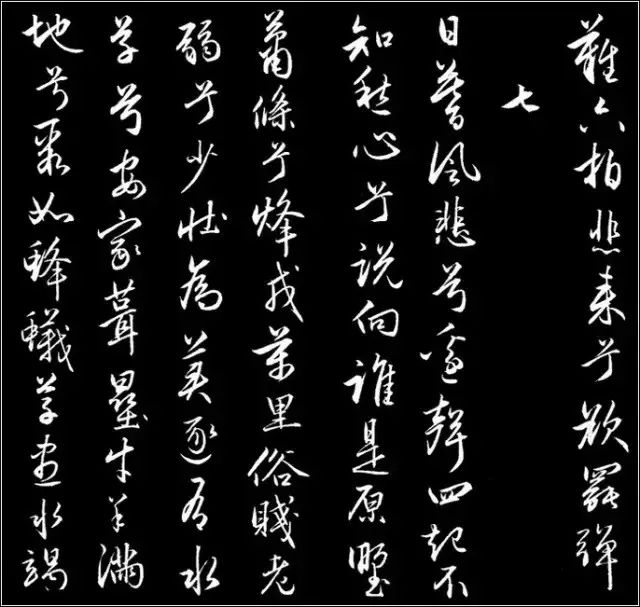 難六拍悲來兮欲罷彈
七
日暮風悲兮邊聲四起不
知愁心兮說向誰是原野
蕭條兮烽戍萬里俗賤老
弱兮少壯為美逐有水
草兮安家葺壘牛羊滿
地兮聚如蜂蟻草盡水竭